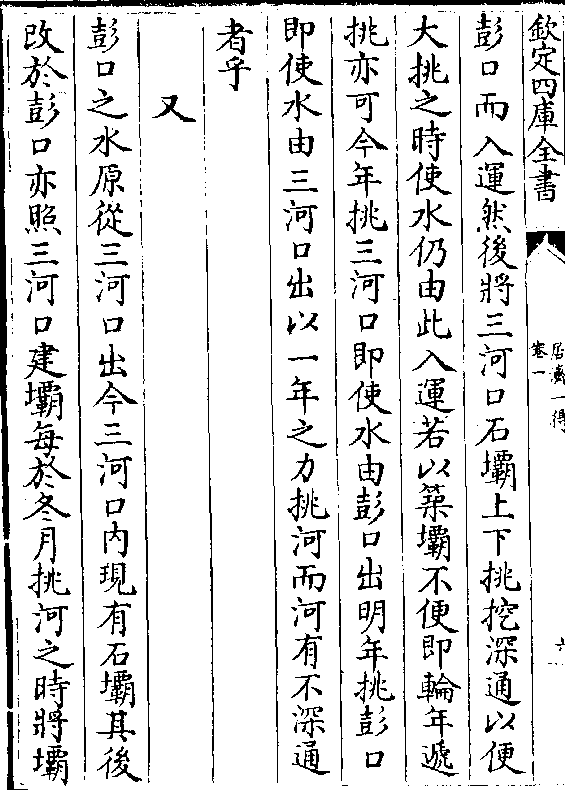 欽定四庫全書
居濟一得
卷一
六
彭口而入運然後將三河口石壩上下挑挖深通以便
大挑之時使水仍由此入運若以築壩不便即輪年遞
挑亦可今年挑三河口即使水由彭口出明年挑彭口
即使水由三河口出以一年之力挑河而河有不深通
者乎
又
彭口之水原從三河口出今三河口内現有石壩其後
改於彭口亦照三河口建壩每於冬月挑河之時將壩